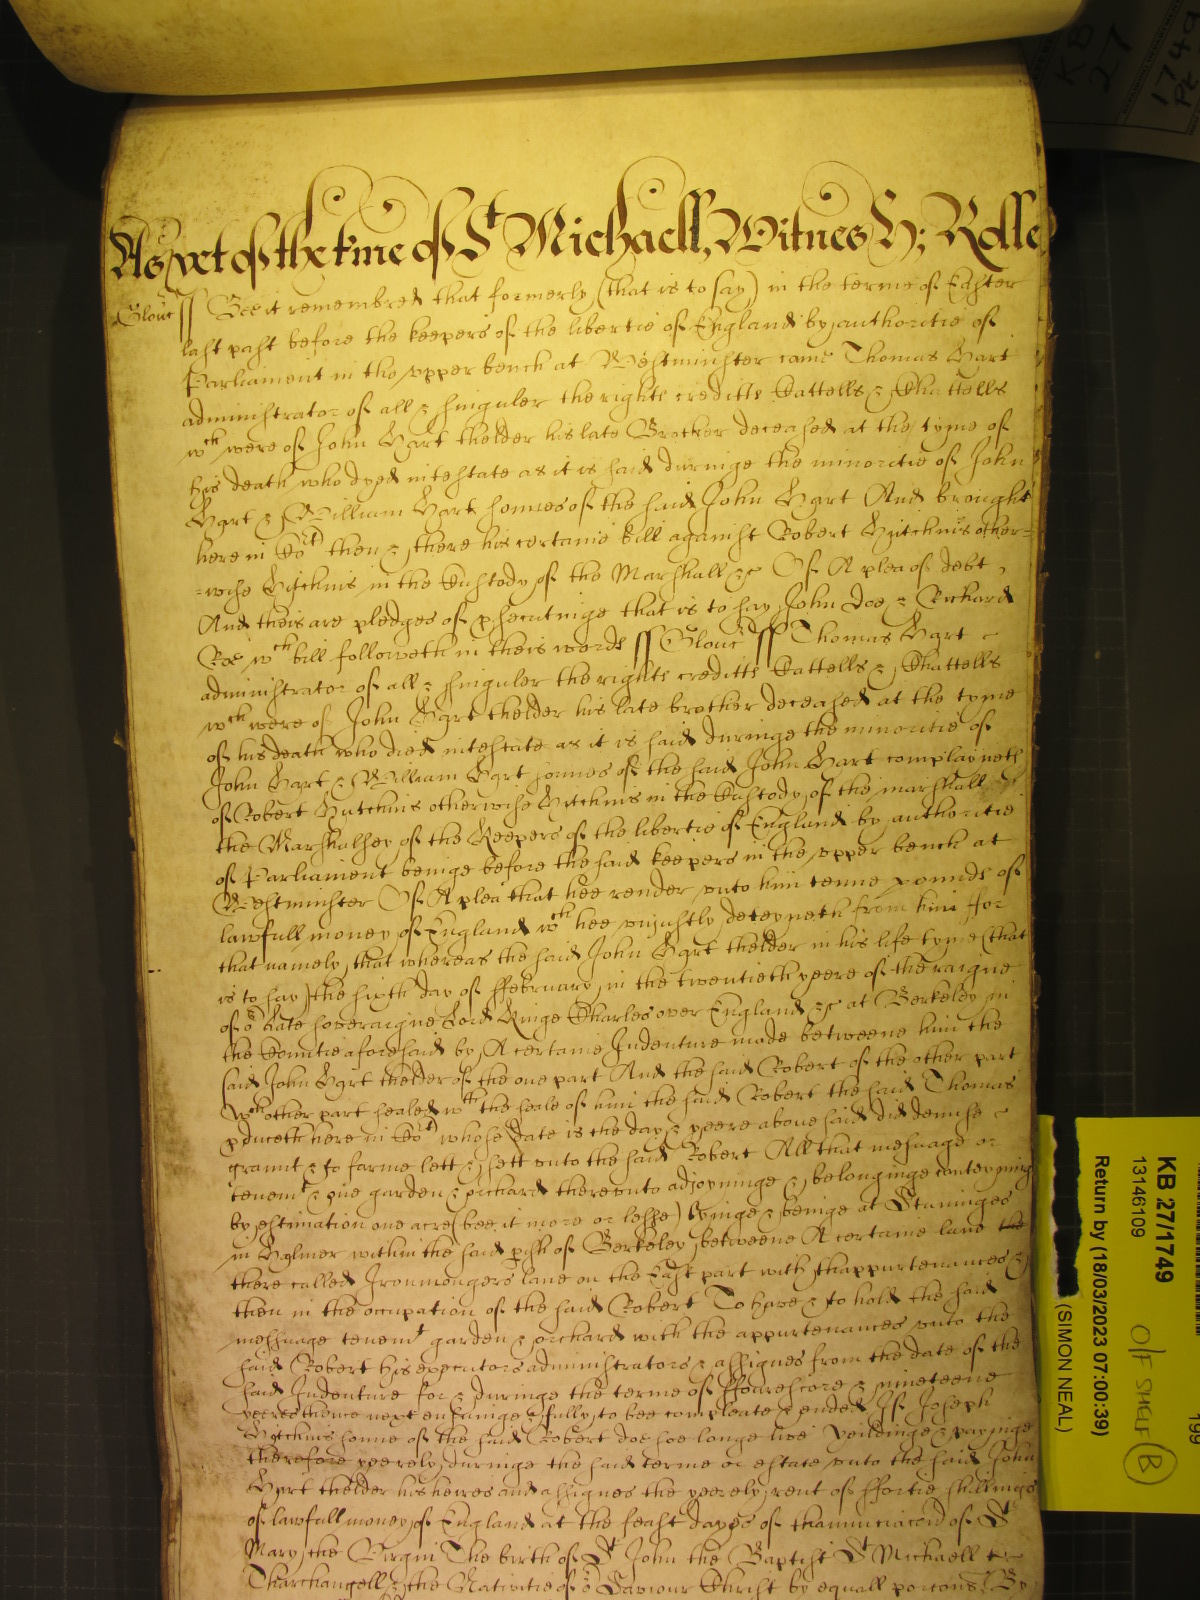 As yet of the t'me of St Michaell, Witnes H: Rolle
Glouc ss Bee it remembred that formerly (that is to say) in the terme of Easter
last past before the keepers of the libertie of England by authoritie of
Parliament in the vpper bench at Westminster came Thomas Hart
administrator of all & singuler the rights creditts Cattells & Chattells
wch were of John Hart thelder his late Brother deceased at the tyme of
his death who dyed intestate as it is said duringe the minoritie of John
Hart & William Hart sonnes of the said John Hart And brought
here in Cort then & there his certaine bill against Robert Hutchins other=
=wise Hitchins in the Custody of the Marshall &c Of A plea of debt
And theis are pledges of p'secutinge that is to say John Doe & Richard
Roe wch bill followeth in theis words ss Glouc ss Thomas Hart
administrator of all & singuler the rights creditts Cattells & Chattells
wch were of John Hart thelder his late brother deceased at the tyme
of his death who died intestate as it is said duringe the minoritie of
John Hart & William Hart sonnes of the said John Hart complayneth
of Robert Hutchins otherwise Hitchins in the Custody of the marshall of
the Marshalsey of the Keepers of the libertie of England by authoritie
of Parliament beinge before the said keepers in the vpper bench at
Westminster Of A plea that hee render vnto him tenne pounds of
lawfull money of England wch hee vniustly deteyneth from him For
that namely that whereas the said John Hart thelder in his life tyme (that
is to say) the sixth day of ffebruary in the twentieth yeere of the raigne
of or late soveraigne Lord Kinge Charles over England &c at Berkeley in
the Countie aforesaid by A certaine Indenture made betweene him the
said John Hart thelder of the one part And the said Robert of the other part
Wch other part sealed wth the seale of him the said Robert the said Thomas
p'duceth here in Cort whose date is the day & yeere abovesaid did demise
graunt & to farme lett & sett vnto the said Robert All that mesuage or
tenemt & one garden & orchard therevnto adjoyninge & belonginge conteyning
by estimation one acre (bee it more or lesse) lyinge & beinge at
in within the said p'ish of Berkeley betweene A certaine lane the
there called Ironmongers lane on the East part with thappurtenances &
then in the occupation of the said Robert To have & to hold the said
messuage tenemt garden & orchard with the appurtenances vnto the
said Robert his executors administrators & assignes from the date of the
said Indenture for & duringe the terme of ffourescore & nineteene
yeeres thence next ensuinge & fully to bee compleate & ended If Joseph
Hitchins sonne of the said Robert doe soe longe live Yeildinge & payinge
therefore yeerely duringe the said terme or estate vnto the said John
Hart thelder his heires and assignes the yeerely rent of ffortie shillings
of lawfull money of England at the feast dayes of thannunciacon of St
Mary the Virgin The birth of St John the Baptist St Michaell
Tharchangell & the Nativitie of or Saviour Christ by equall porcons By
KB 27/1749
13146109
Return by (18/03/2023 07:00:39)
(SIMON NEAL)
O/F SMALL B
199
KB
27
1749
Pt